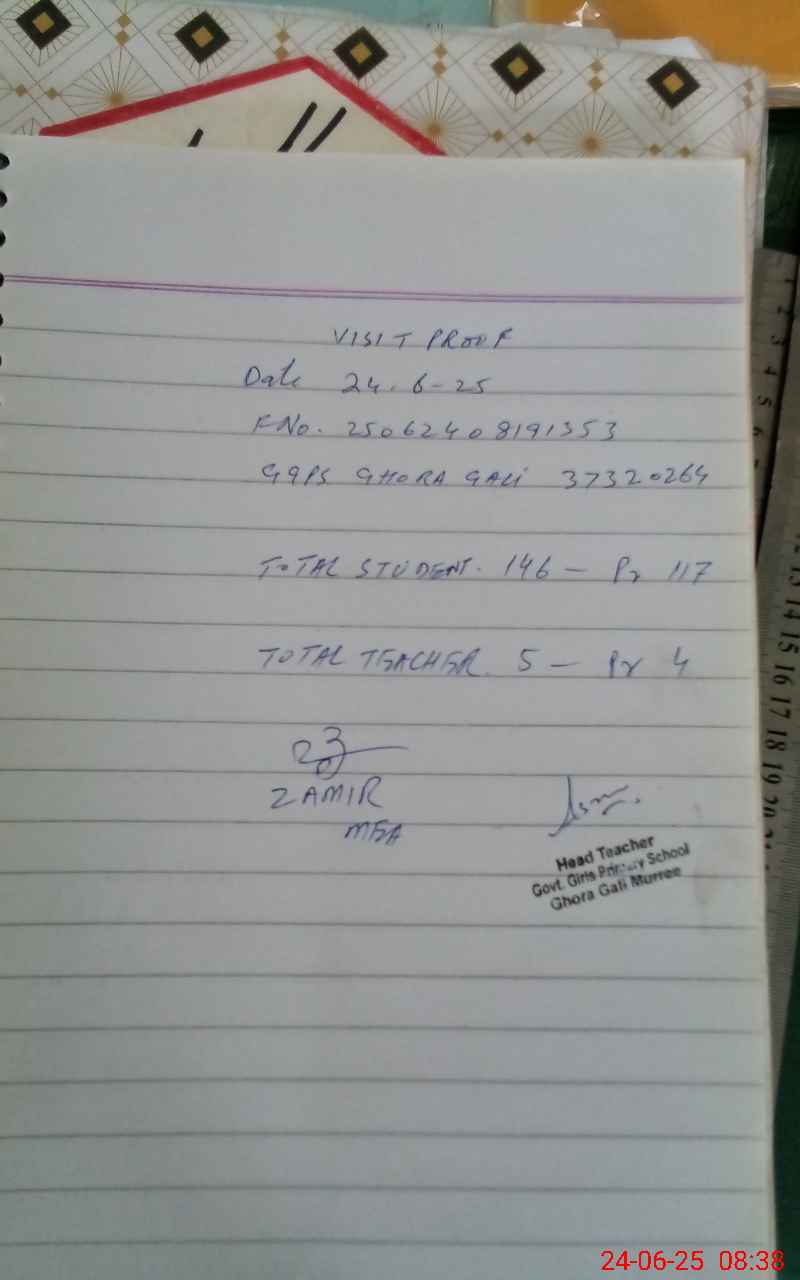 VISIT PROOF
Date 24.6-25
FNo. 25062408191353
GGPS GHORA GALI 37320264
TOTAL STUDENT. 146 - Pr 117
TOTAL TEACHER. 5 - Pr 4
ZAMIR
MEA
Head Teacher
Govt. Girls Primary School
Ghora Gali Murree
3
4
5
6
12
13
14
15
16
17
18
19
20
24-06-25 08:38